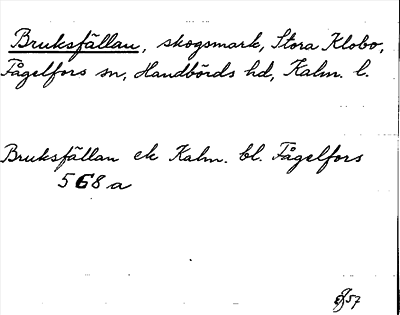 Bruksfällan, skogsmark, Stora Klobo,
Fågelfors sn, Handbörds hd, Kalm. l.
Bruksfällan ek Kalm. bl. Fågelfors
568 a
57